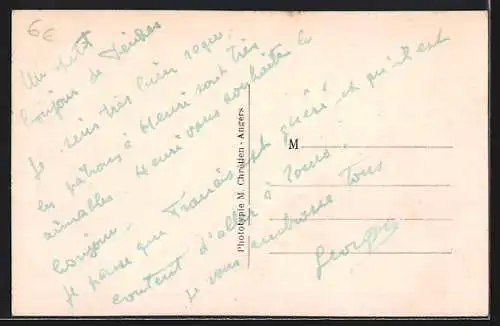 6€
Un petit
bonjour de
Je suis très bien reçue,
les patrons à Henri sont très
aimables. Henri vous souhaite le
bonjour.
Je pense que Francis est guéri et qu'il est
content d'aller à Tours.
Je vous embrasse tous
Georgette
Phototypie M. Chrétien - Angers
M